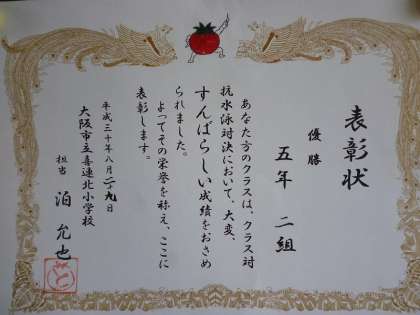 表彰状
優勝
五年 二組
あなた方のクラスは、クラス対
抗水泳対決において、大変、
すんばらしい成績をおさめ
られました。
よってその栄誉を称え、ここに
表彰します。
平成三十年八月二十九日
大阪市立喜連北小学校
担当 泊 允也